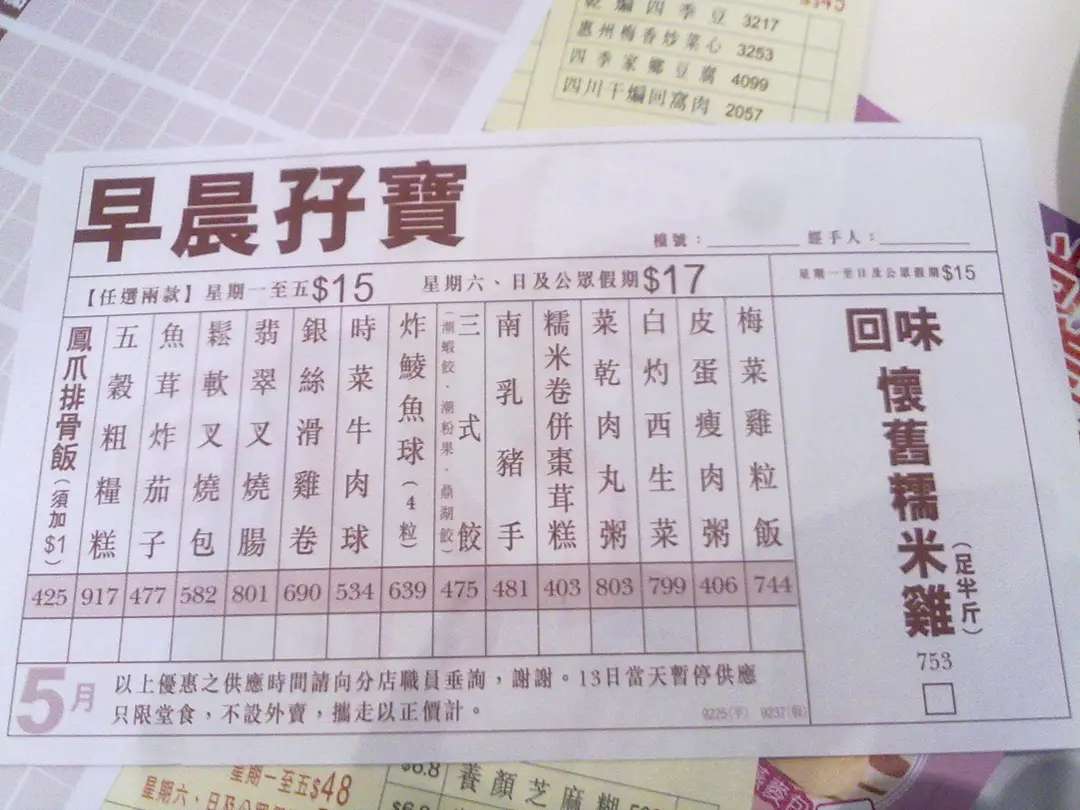 乾煸四季豆 3217
惠州梅香炒菜心 3253
四季家鄉豆腐 4099
四川干煸回窩肉 2057
早晨孖寶
檯號：
經手人：
【任選兩款】星期一至五$15
星期六、日及公眾假期$17
星期一至日及公眾假期$15
梅菜雞粒飯
皮蛋瘦肉粥
白灼西生菜
菜乾肉丸粥
糯米卷併棗茸糕
南乳豬手
三式餃
(潮蝦餃．潮粉果．鼎湖餃)
炸鯪魚球(4粒)
時菜牛肉球
銀絲滑雞卷
翡翠叉燒腸
鬆軟叉燒包
魚茸炸茄子
五穀粗糧糕
鳳爪排骨飯(須加$1)
425 917 477 582 801 690 534 639 475 481 403 803 799 406 744
回味
懷舊糯米雞
(足半斤)
753
5月
以上優惠之供應時間請向分店職員垂詢，謝謝。13日當天暫停供應
只限堂食，不設外賣，攜走以正價計。
9225(平) 9237(假)
星期一至五$48
$6.8
養顏芝麻糊